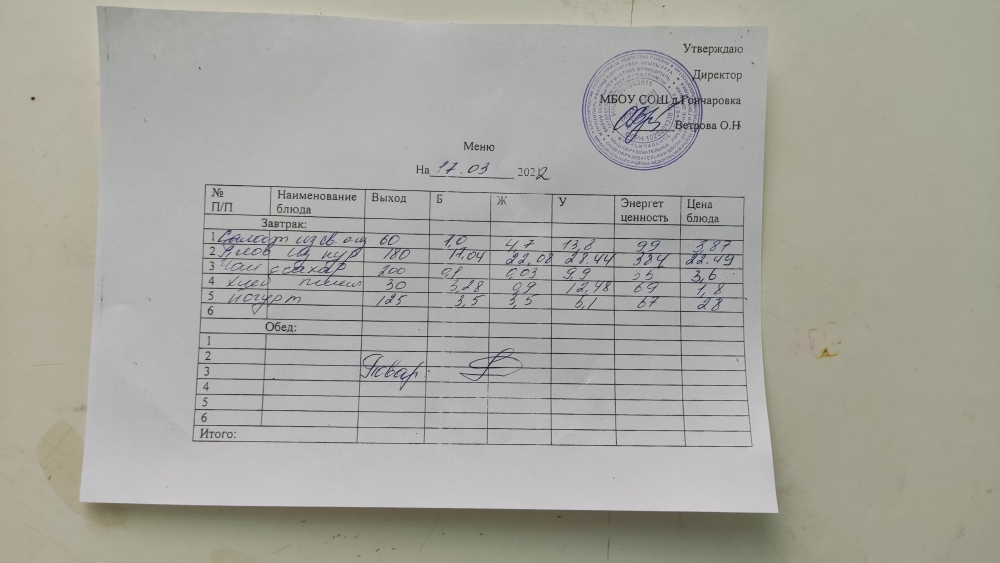 Утверждаю
Директор
МБОУ СОШ д.Гончаровка
Ветрова О.Н
Меню
На 17.03 2022
№ П/П Наименование блюда Выход Б Ж У Энергет ценность Цена блюда
Завтрак:
1 Салат из св. ог 60 1,0 4,7 13,8 99 3,87
2 Плов из кур 180 17.04 22,08 28.44 384 22.49
3 Чай с сахар 200 0,1 0,03 9,9 35 3,6
4 Хлеб 30 3,28 0,9 12,48 69 1,8
5 Йогурт 125 3,5 3,5 5,1 67 28
6
Обед:
1
2
3 Повар
4
5
6
Итого: